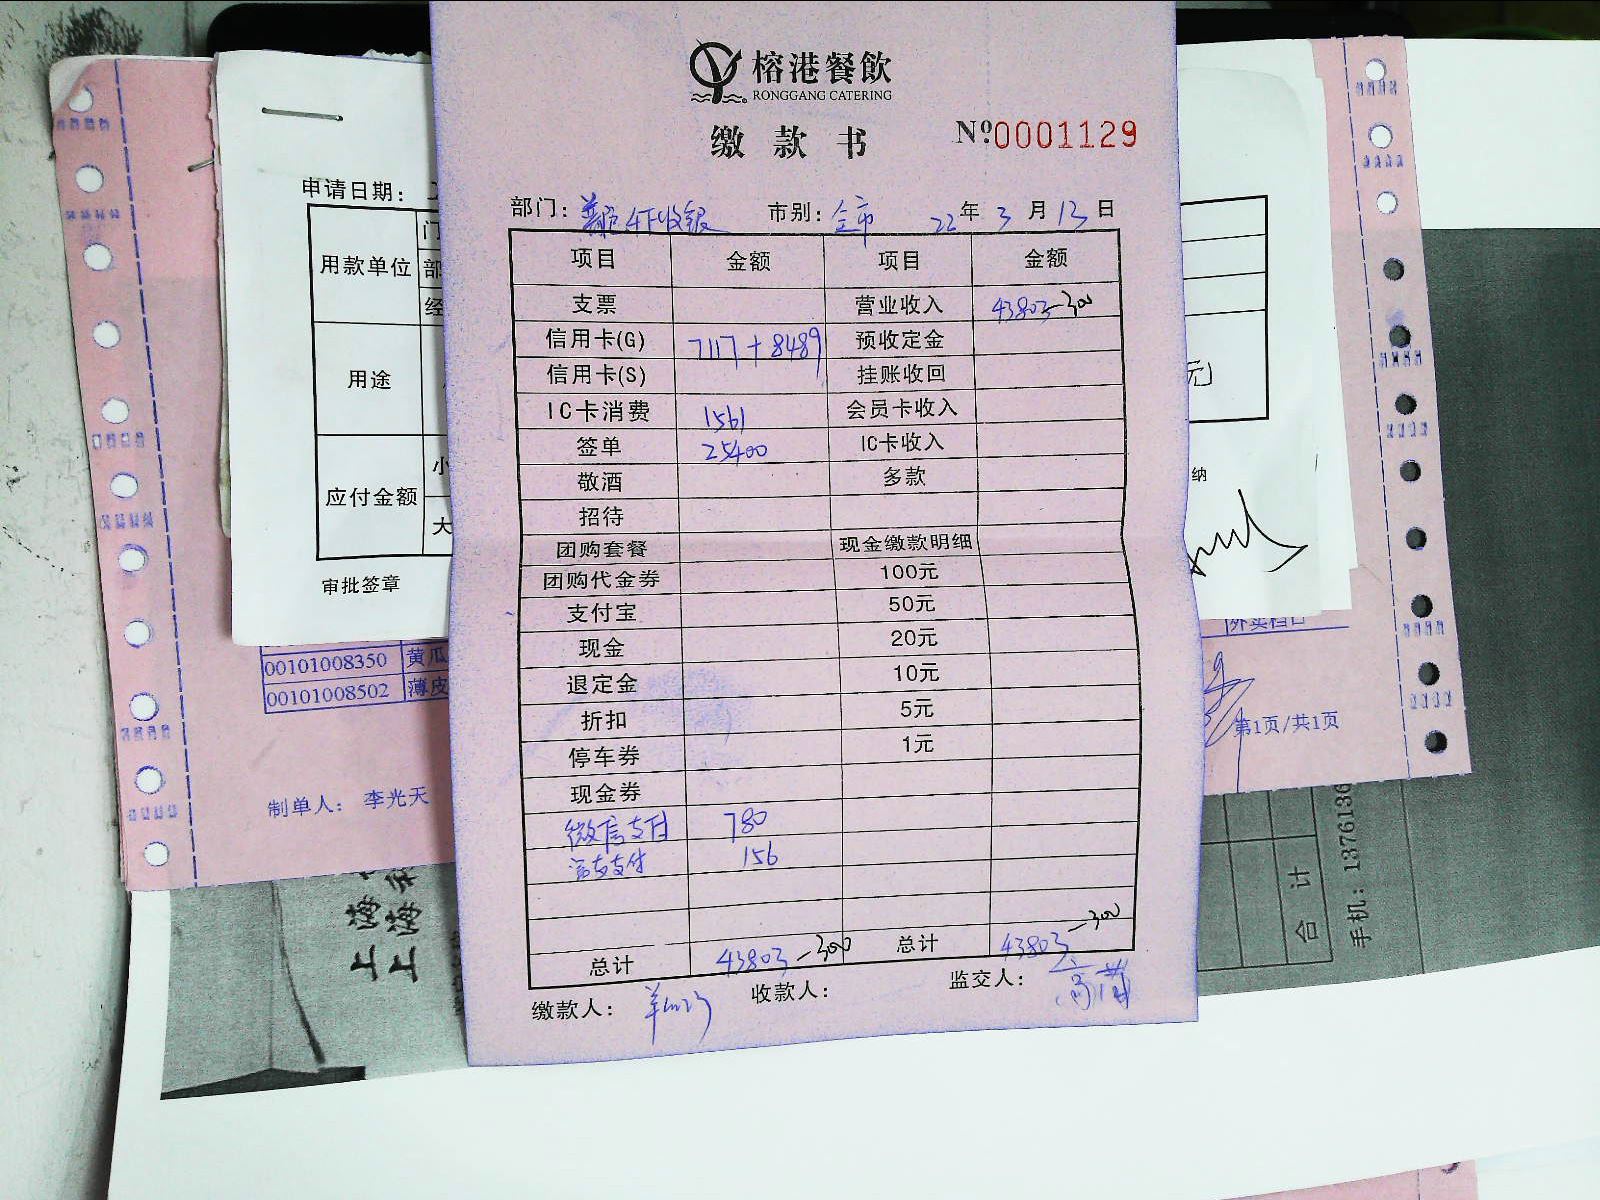 榕港餐飲
RONGGANG CATERING
缴款书 №0001129
部门: 收银 市别: 全市 22年3月13日
项目 金额 项目 金额
支票 营业收入 43803-300
信用卡(G) 7117+8489 预收定金
信用卡(S) 挂账收回
IC卡消费 1561 会员卡收入
签单 25400 IC卡收入
敬酒 多款
招待
团购套餐 现金缴款明细
团购代金券 100元
支付宝 50元
现金 20元
退定金 10元
折扣 5元
停车券 1元
现金券
微信支付 780
支付 156
总计 43803-300 总计 43803-300
缴款人: 收款人: 监交人:
申请日期:
用款单位
部
经
用途
元
应付金额
小
大
纳
审批签章
外卖档口
00101008350 黄瓜
00101008502 薄皮
第1页/共1页
制单人: 李光天
上海
上海
合计
手机: 1376136